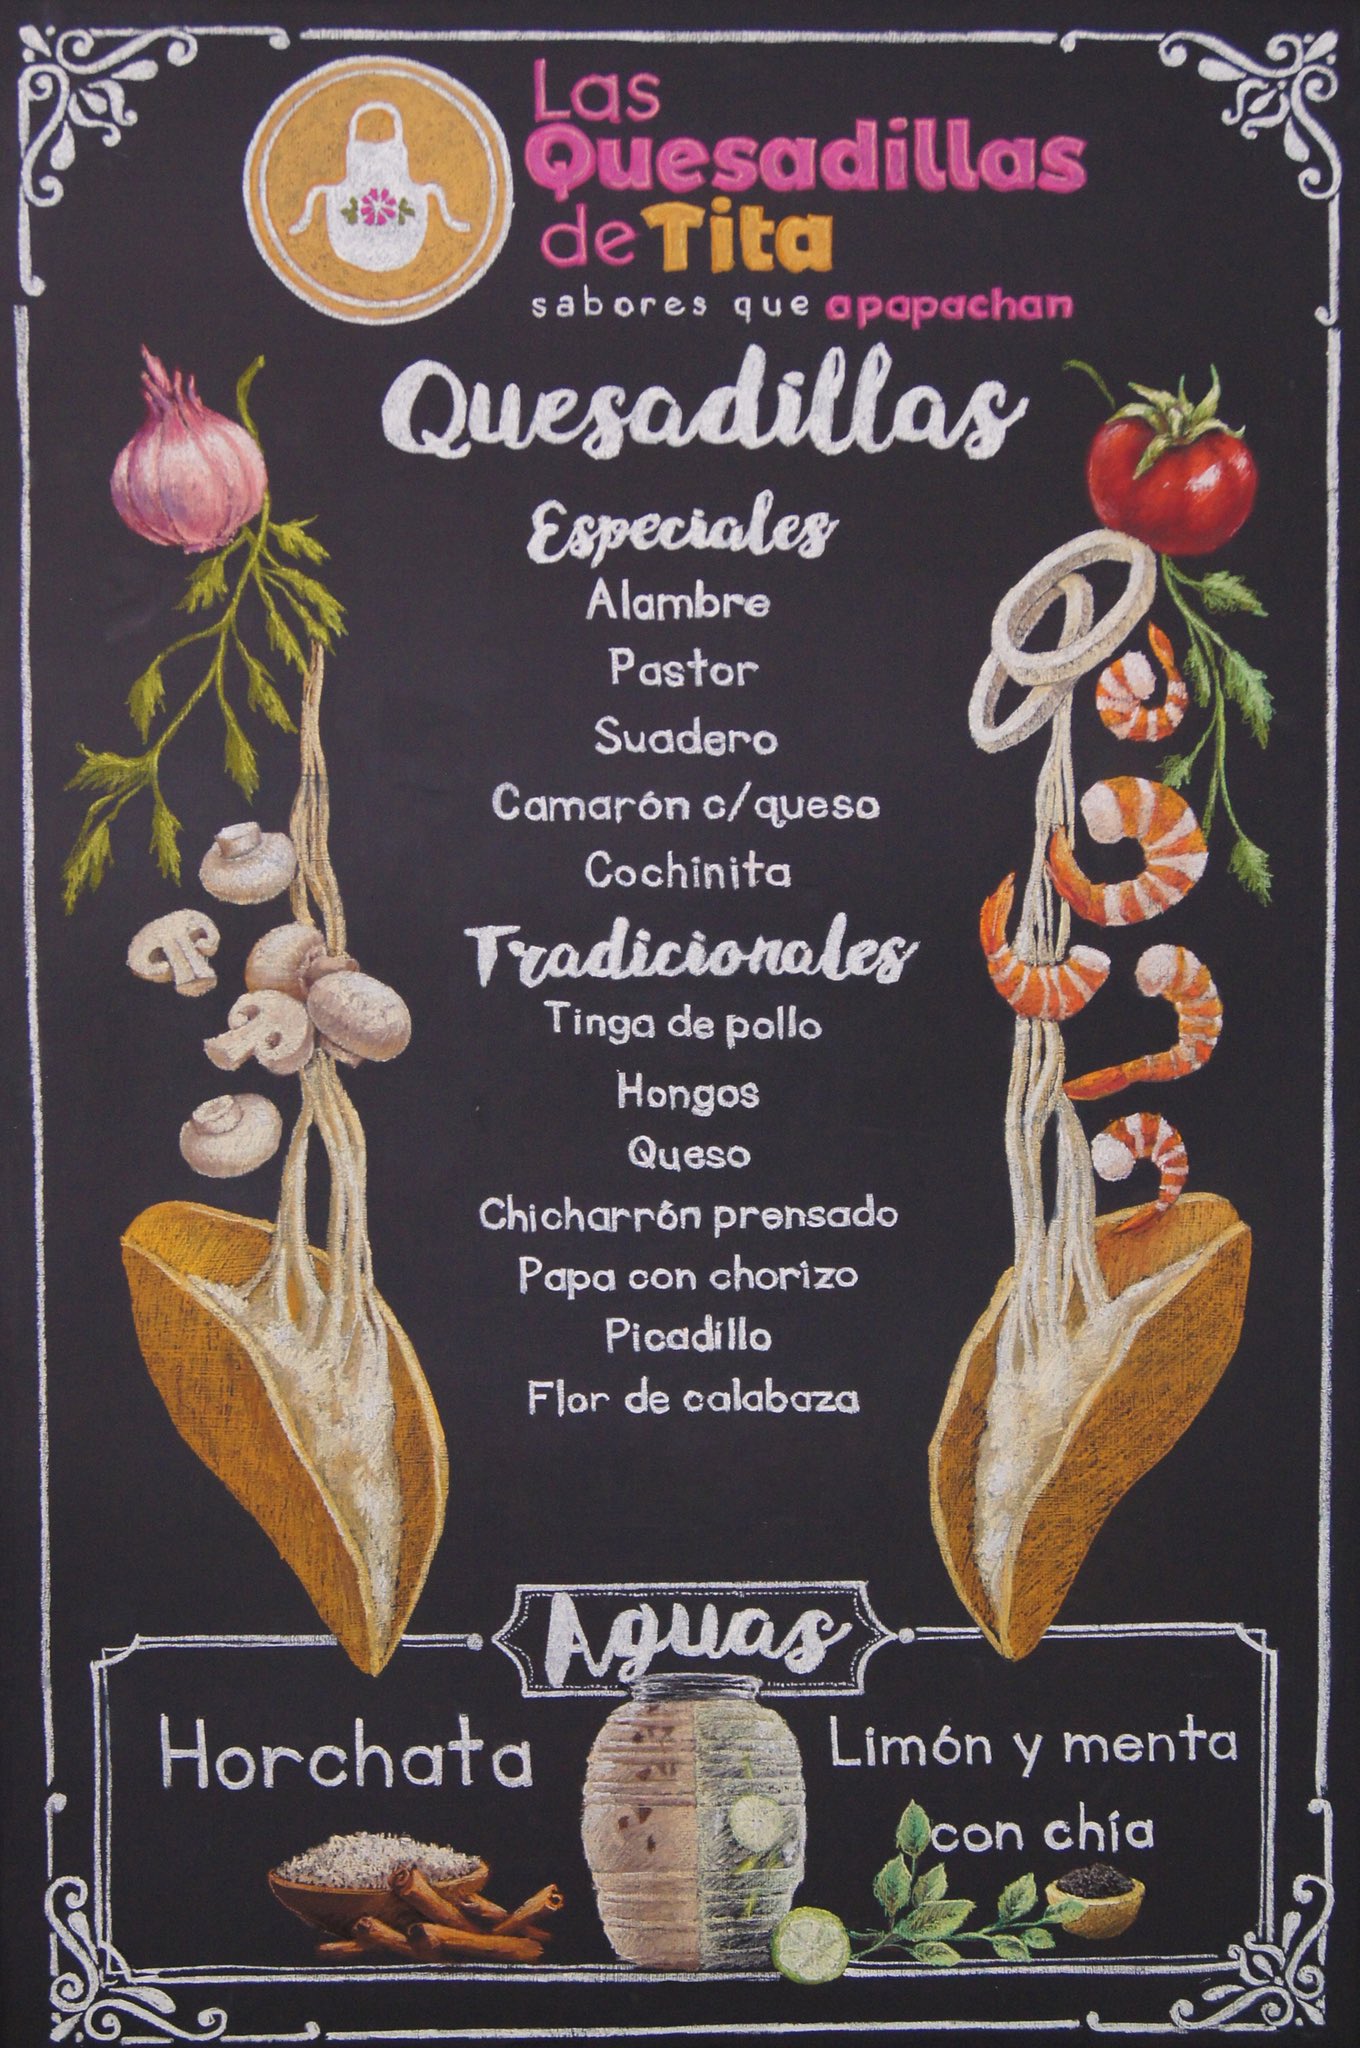 Las
Quesadillas
de Tita
sabores que apapachan
Quesadillas
Especiales
Alambre
Pastor
Suadero
Camarón c/queso
Cochinita
Tradicionales
Tinga de pollo
Hongos
Queso
Chicharrón prensado
Papa con chorizo
Picadillo
Flor de calabaza
Aguas
Horchata
Limón y menta
con chía